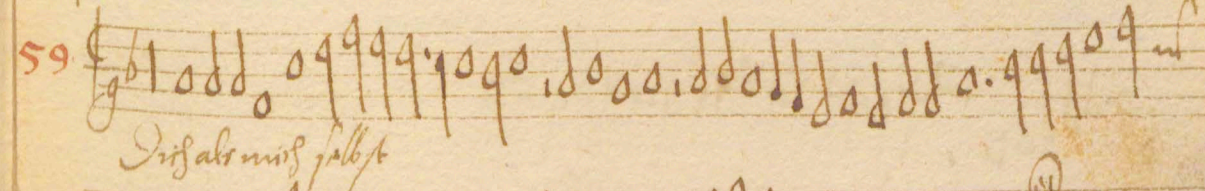 59.
Dich als mich selbst